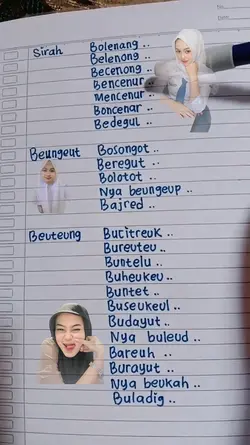 No.
Sirah Bolenang ..
Belenong ..
Becenong ..
Bencenur ..
Mencenur ..
Boncenar ..
Bedegul ..
Beungeut Bosongot ..
Beregut ..
Bolotot ..
Nya beungeup ..
Bajred ..
Beuteung Bucitreuk ..
Bureuteu ..
Buntelu ..
Buheukeu ..
Buntet ..
Buseukeul ..
Budayut ..
Nya buleud ..
Bareuh ..
Burayut ..
Nya beukah ..
Buladig ..